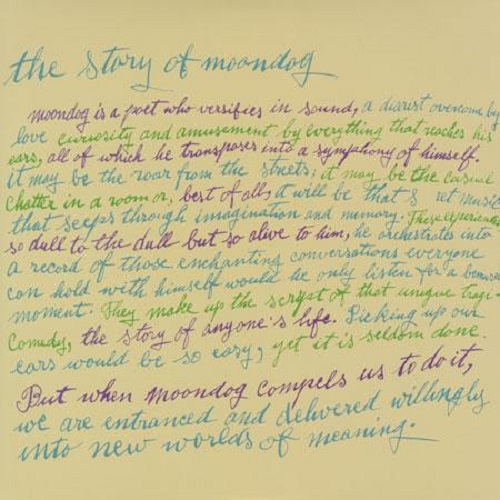 the story of moondog
moondog is a poet who versifies in sound, a diarist overcome by
love curiosity and amusement by everything that reaches his
ears, all of which he transposes into a symphony of himself.
it may be the roar from the streets; it may be the casual
chatter in a room or, best of all, it will be that s ret music
that seeps through imagination and memory. These experiences
so dull to the dull but so alive to him, he orchestrates into
a record of those enchanting conversations everyone
can hold with himself would he only listen for a
moment. They make up the script of that unique tragi
comedy, the story of anyone's life. Picking up our
ears would be so easy, yet it is seldom done.
But when moondog compels us to do it,
we are entranced and delivered willingly
into new worlds of meaning.